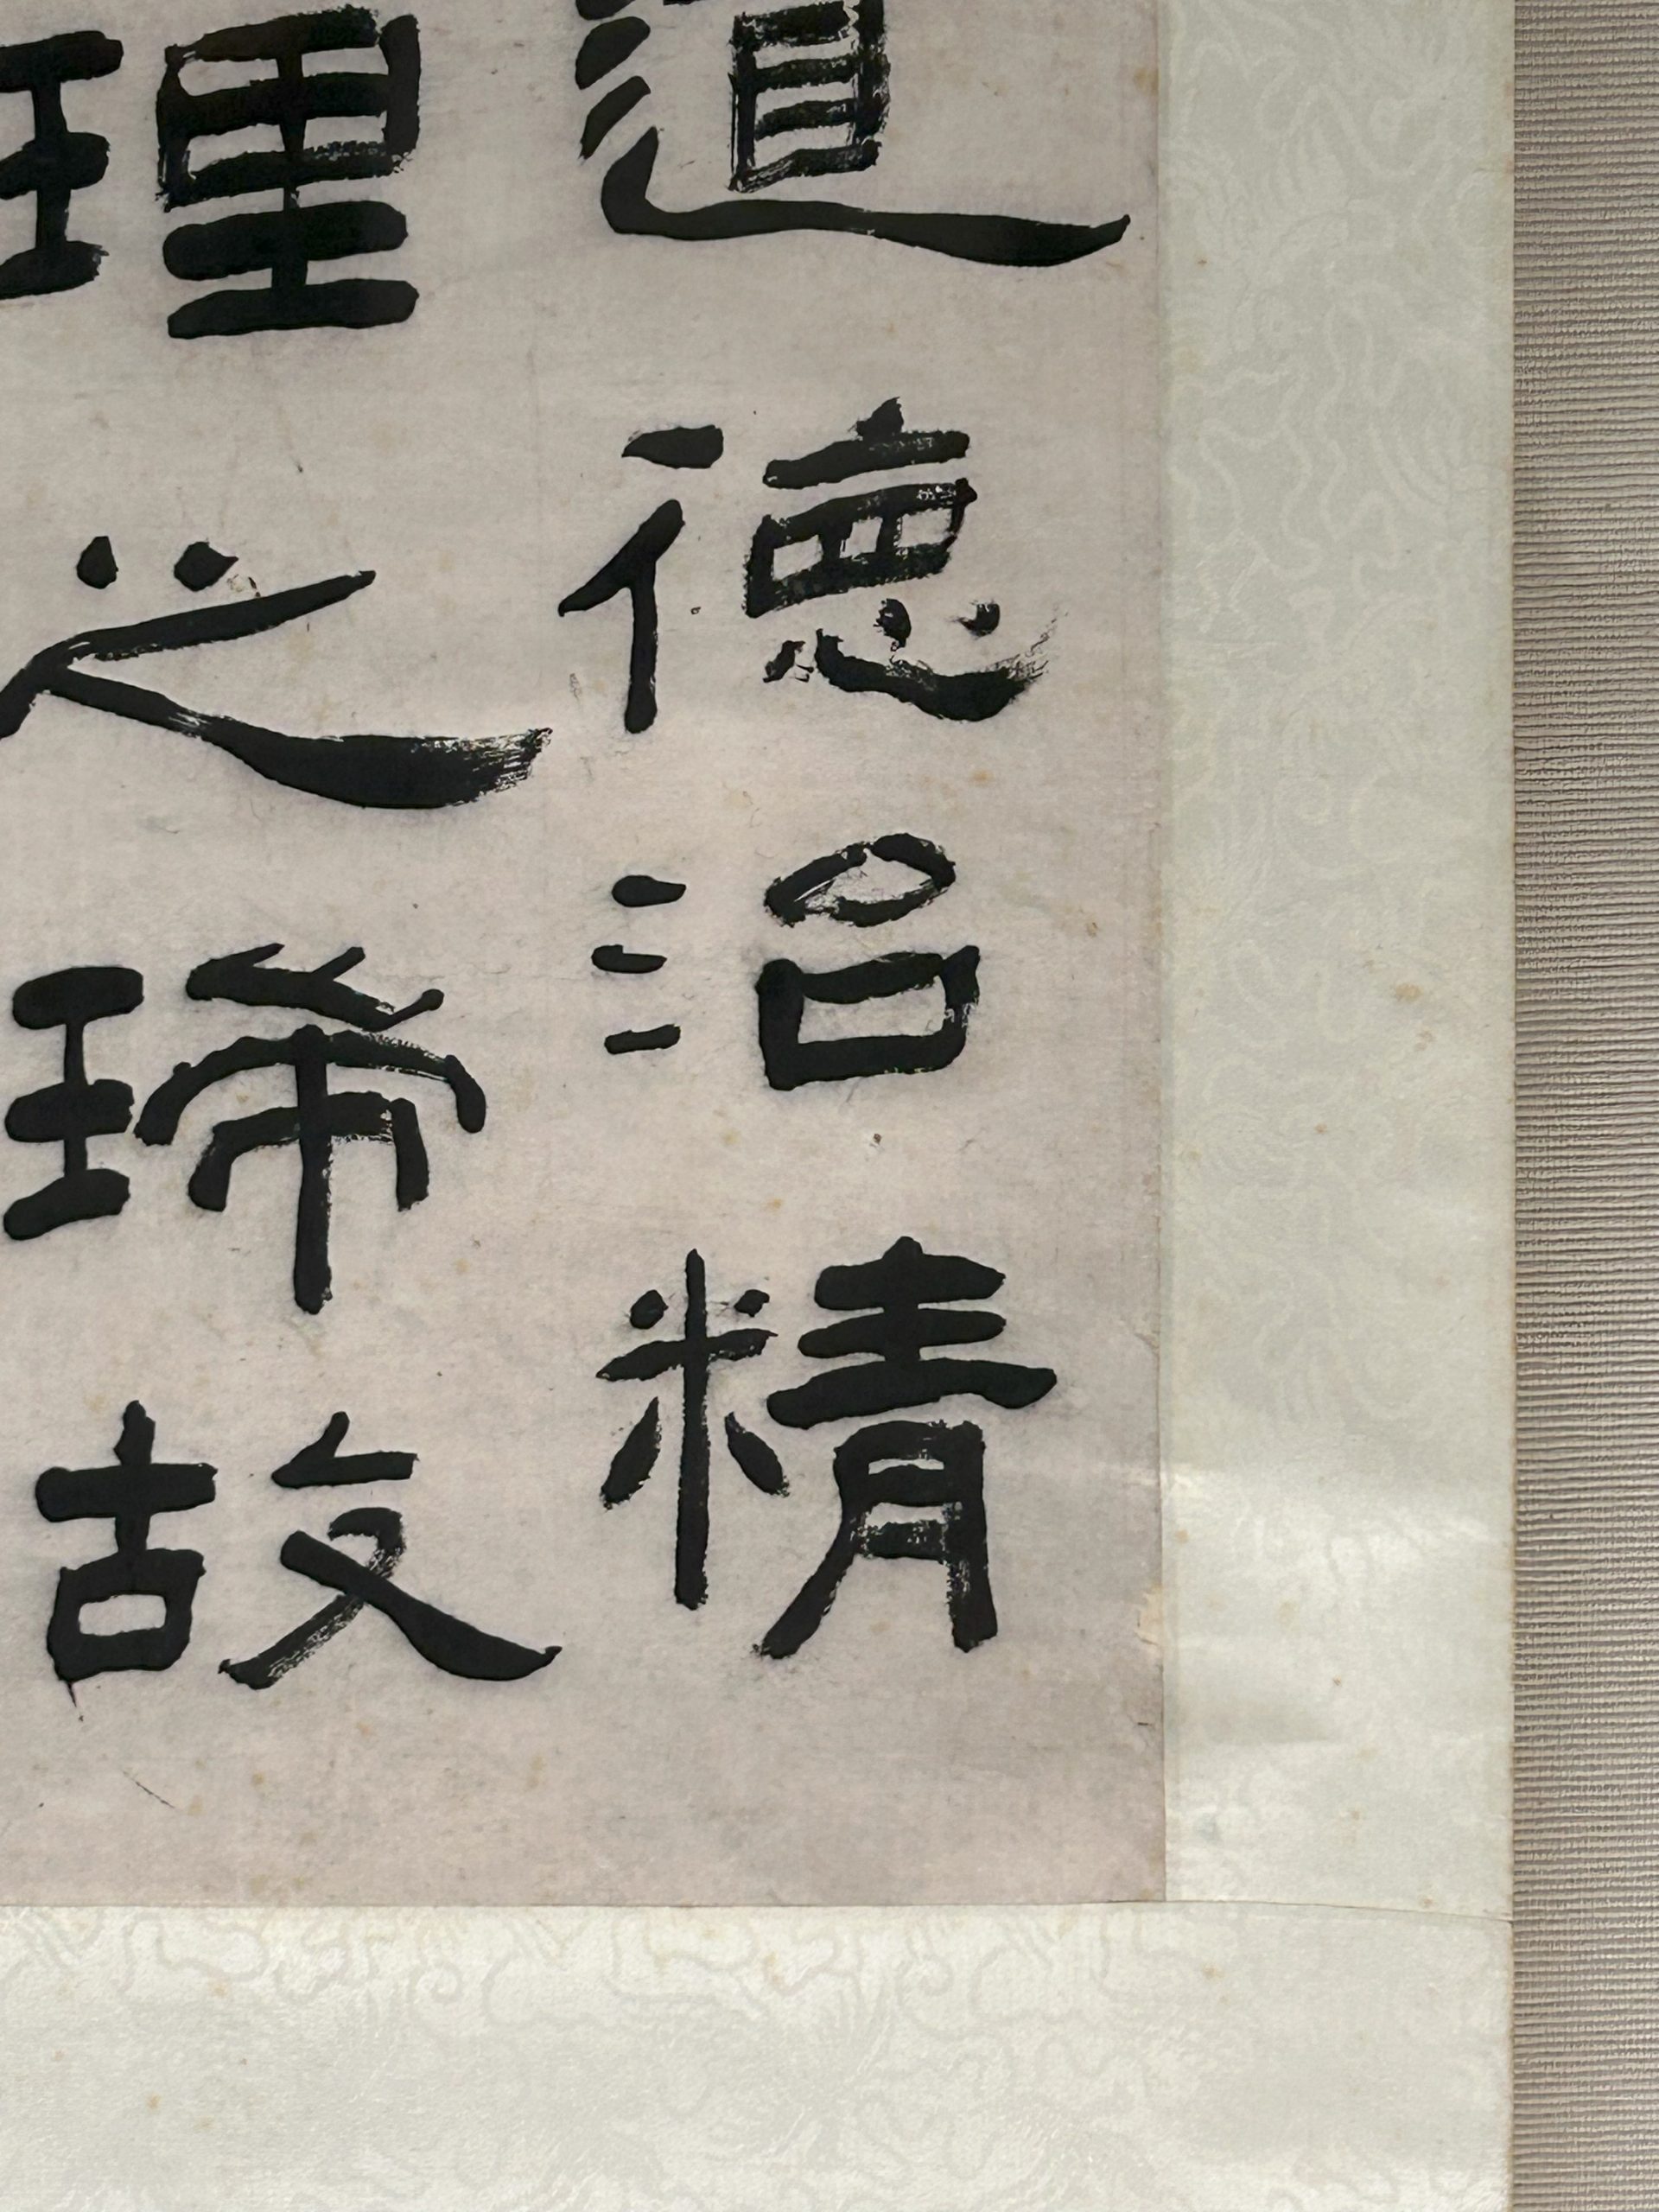 道德治精
理之琋故